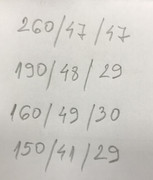 260/47/47
190/48/29
160/49/30
150/41/29